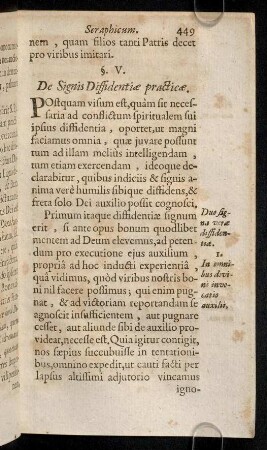 Seraphicum. 449
nem, quam filios tanti Patris decet
pro viribus imitari.
§. V.
De Signis Diffidentiæ practicæ.
POstquam visum est, quàm sit neces-
saria ad conflictum spiritualem sui
ipsius diffidentia, oportet, ut magni
faciamus omnia, quæ juvare possunt
tum ad illam meliùs intelligendam,
tum etiam exercendam, ideoque de-
clarabitur, quibus indiciis & signis a-
nima verè humilis sibique diffidens, &
freta solo Dei auxilio possit cognosci,
Primum itaque diffidentiæ signum
erit, si ante opus bonum quodliber
mentem ad Deum elevemus, ad peten-
dum pro executione ejus auxilium,
propriâ ad hoc inducti experientiâ
quâ vidimus, quòd viribus nostris bo-
ni nil facere possimus; qui enim pug-
nat, & ad victoriam reportandam se
agnoscit insufficientem, aut pugnare
cesset, aut aliunde sibi de auxilio pro-
videat, necesse est, Quia igitur contigit,
nos sæpius succubuisse in tentationi-
bus, omnino expedit, ut cauti facti per
lapsus altissimi adjutorio vincamus
igno-
Duo sig-
na veræ
diffiden-
tiæ.
1.
In omni-
bus divi-
ni invo-
catio
auxilii.